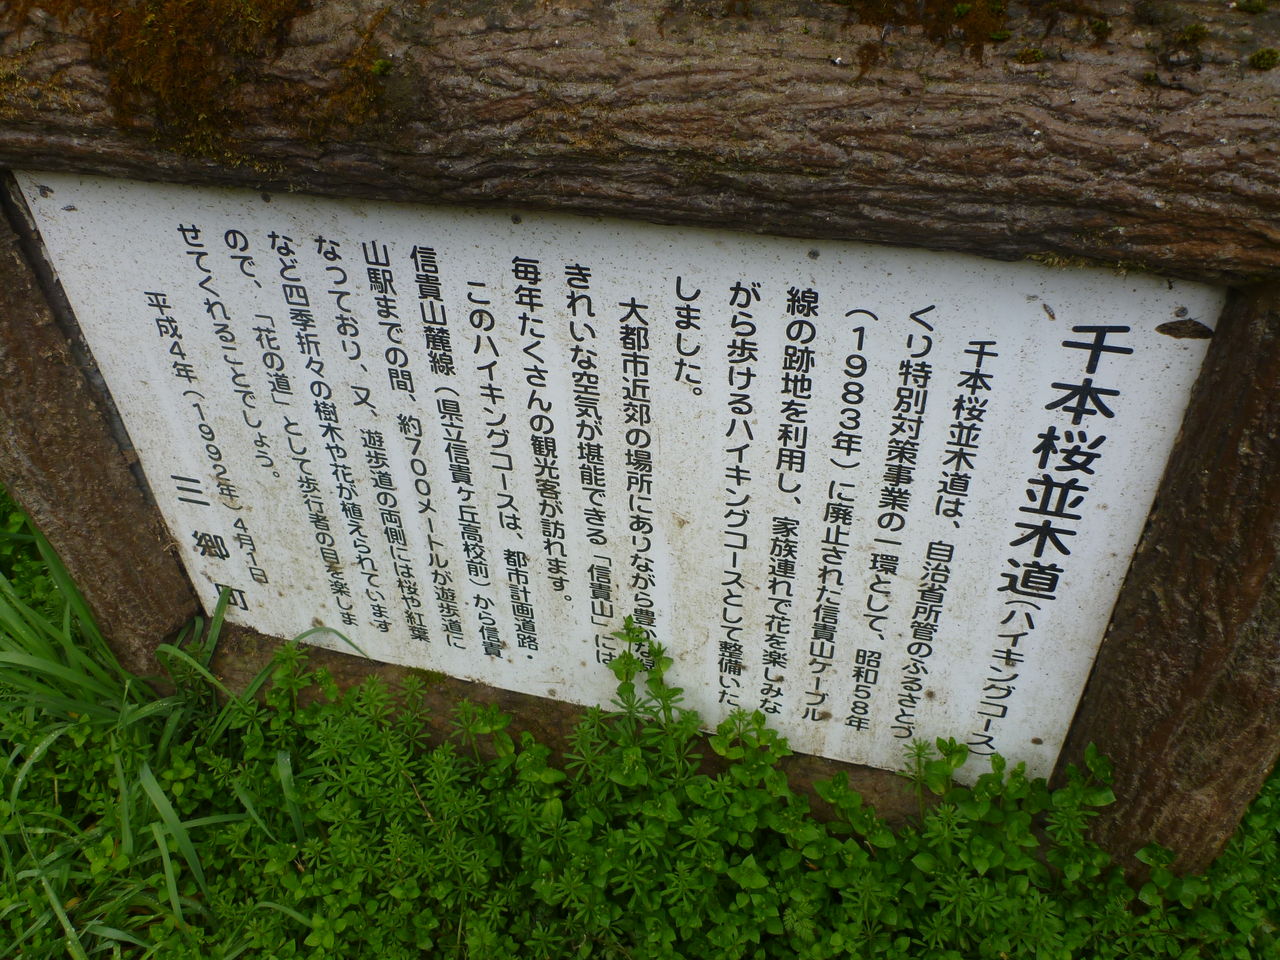 千本桜並木道(ハイキングコース)
千本桜並木道は、自治省所管のふるさとづ
くり特別対策事業の一環として、昭和58年
(1983年)に廃止された信貴山ケーブル
線の跡地を利用し、家族連れで花を楽しみな
がら歩けるハイキングコースとして整備いた
しました。
大都市近郊の場所にありながら豊か
きれいな空気が堪能できる「信貴山」には
毎年たくさんの観光客が訪れます。
このハイキングコースは、都市計画道路・
信貴山麓線(県立信貴ヶ丘高校前)から信貴
山駅までの間、約700メートルが遊歩道に
なつており、又、遊歩道の両側には桜や紅葉
など四季折々の樹木や花が植えられています
ので、「花の道」として歩行者の目を楽しま
せてくれることでしょう。
平成4年(1992年)4月1日
三郷町